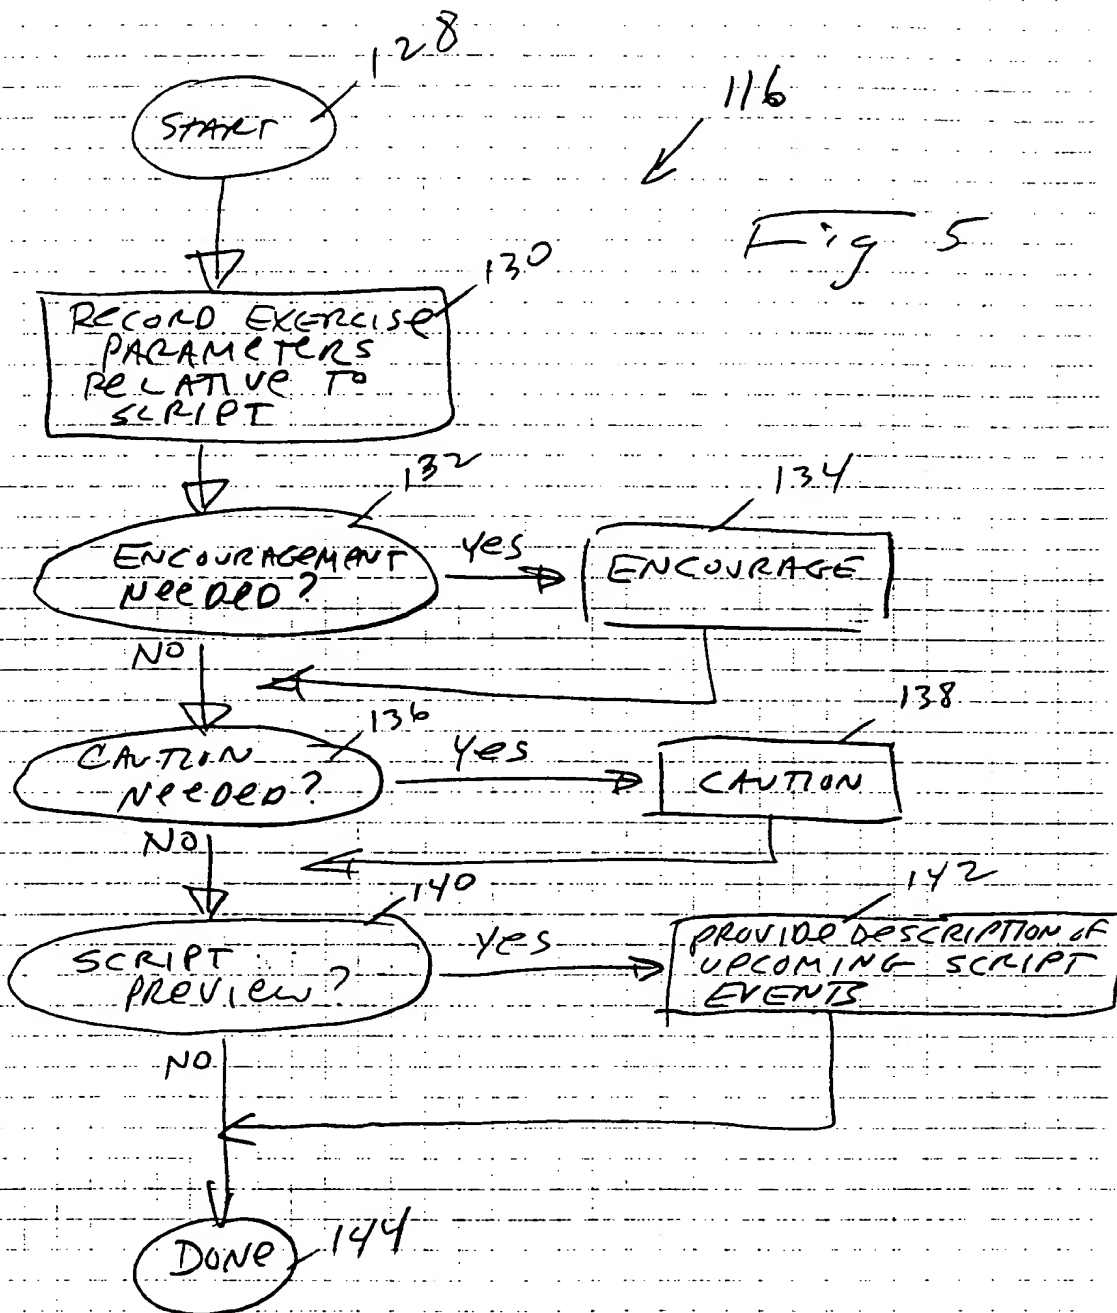 128
START
116
Fig 5
130
RECORD EXERCISE
PARAMETERS
RELATIVE TO
SCRIPT
132
ENCOURAGEMENT
NEEDED?
YES
134
ENCOURAGE
NO
136
CAUTION
NEEDED?
YES
138
CAUTION
NO
140
SCRIPT
PREVIEW?
YES
142
PROVIDE DESCRIPTION OF
UPCOMING SCRIPT
EVENTS
NO
DONE
144